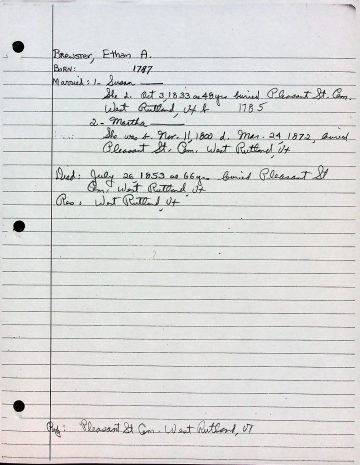 Brewster, Ethan A.
Born: 1787
Married: 1- Susan ——
She d. Oct 3, 1833 ae 48 yrs buried Pleasant St. Cem.
West Rutland, Vt b 1785
2- Martha
She was b. Nov. 11, 1800 d. Mar. 24 1872, buried
Pleasant St. Cem. West Rutland, Vt
Died: July 26 1853 ae 66 yrs buried Pleasant St
Cem. West Rutland, Vt
Res: West Rutland, Vt
Ref: Pleasant St Cem. West Rutland, VT